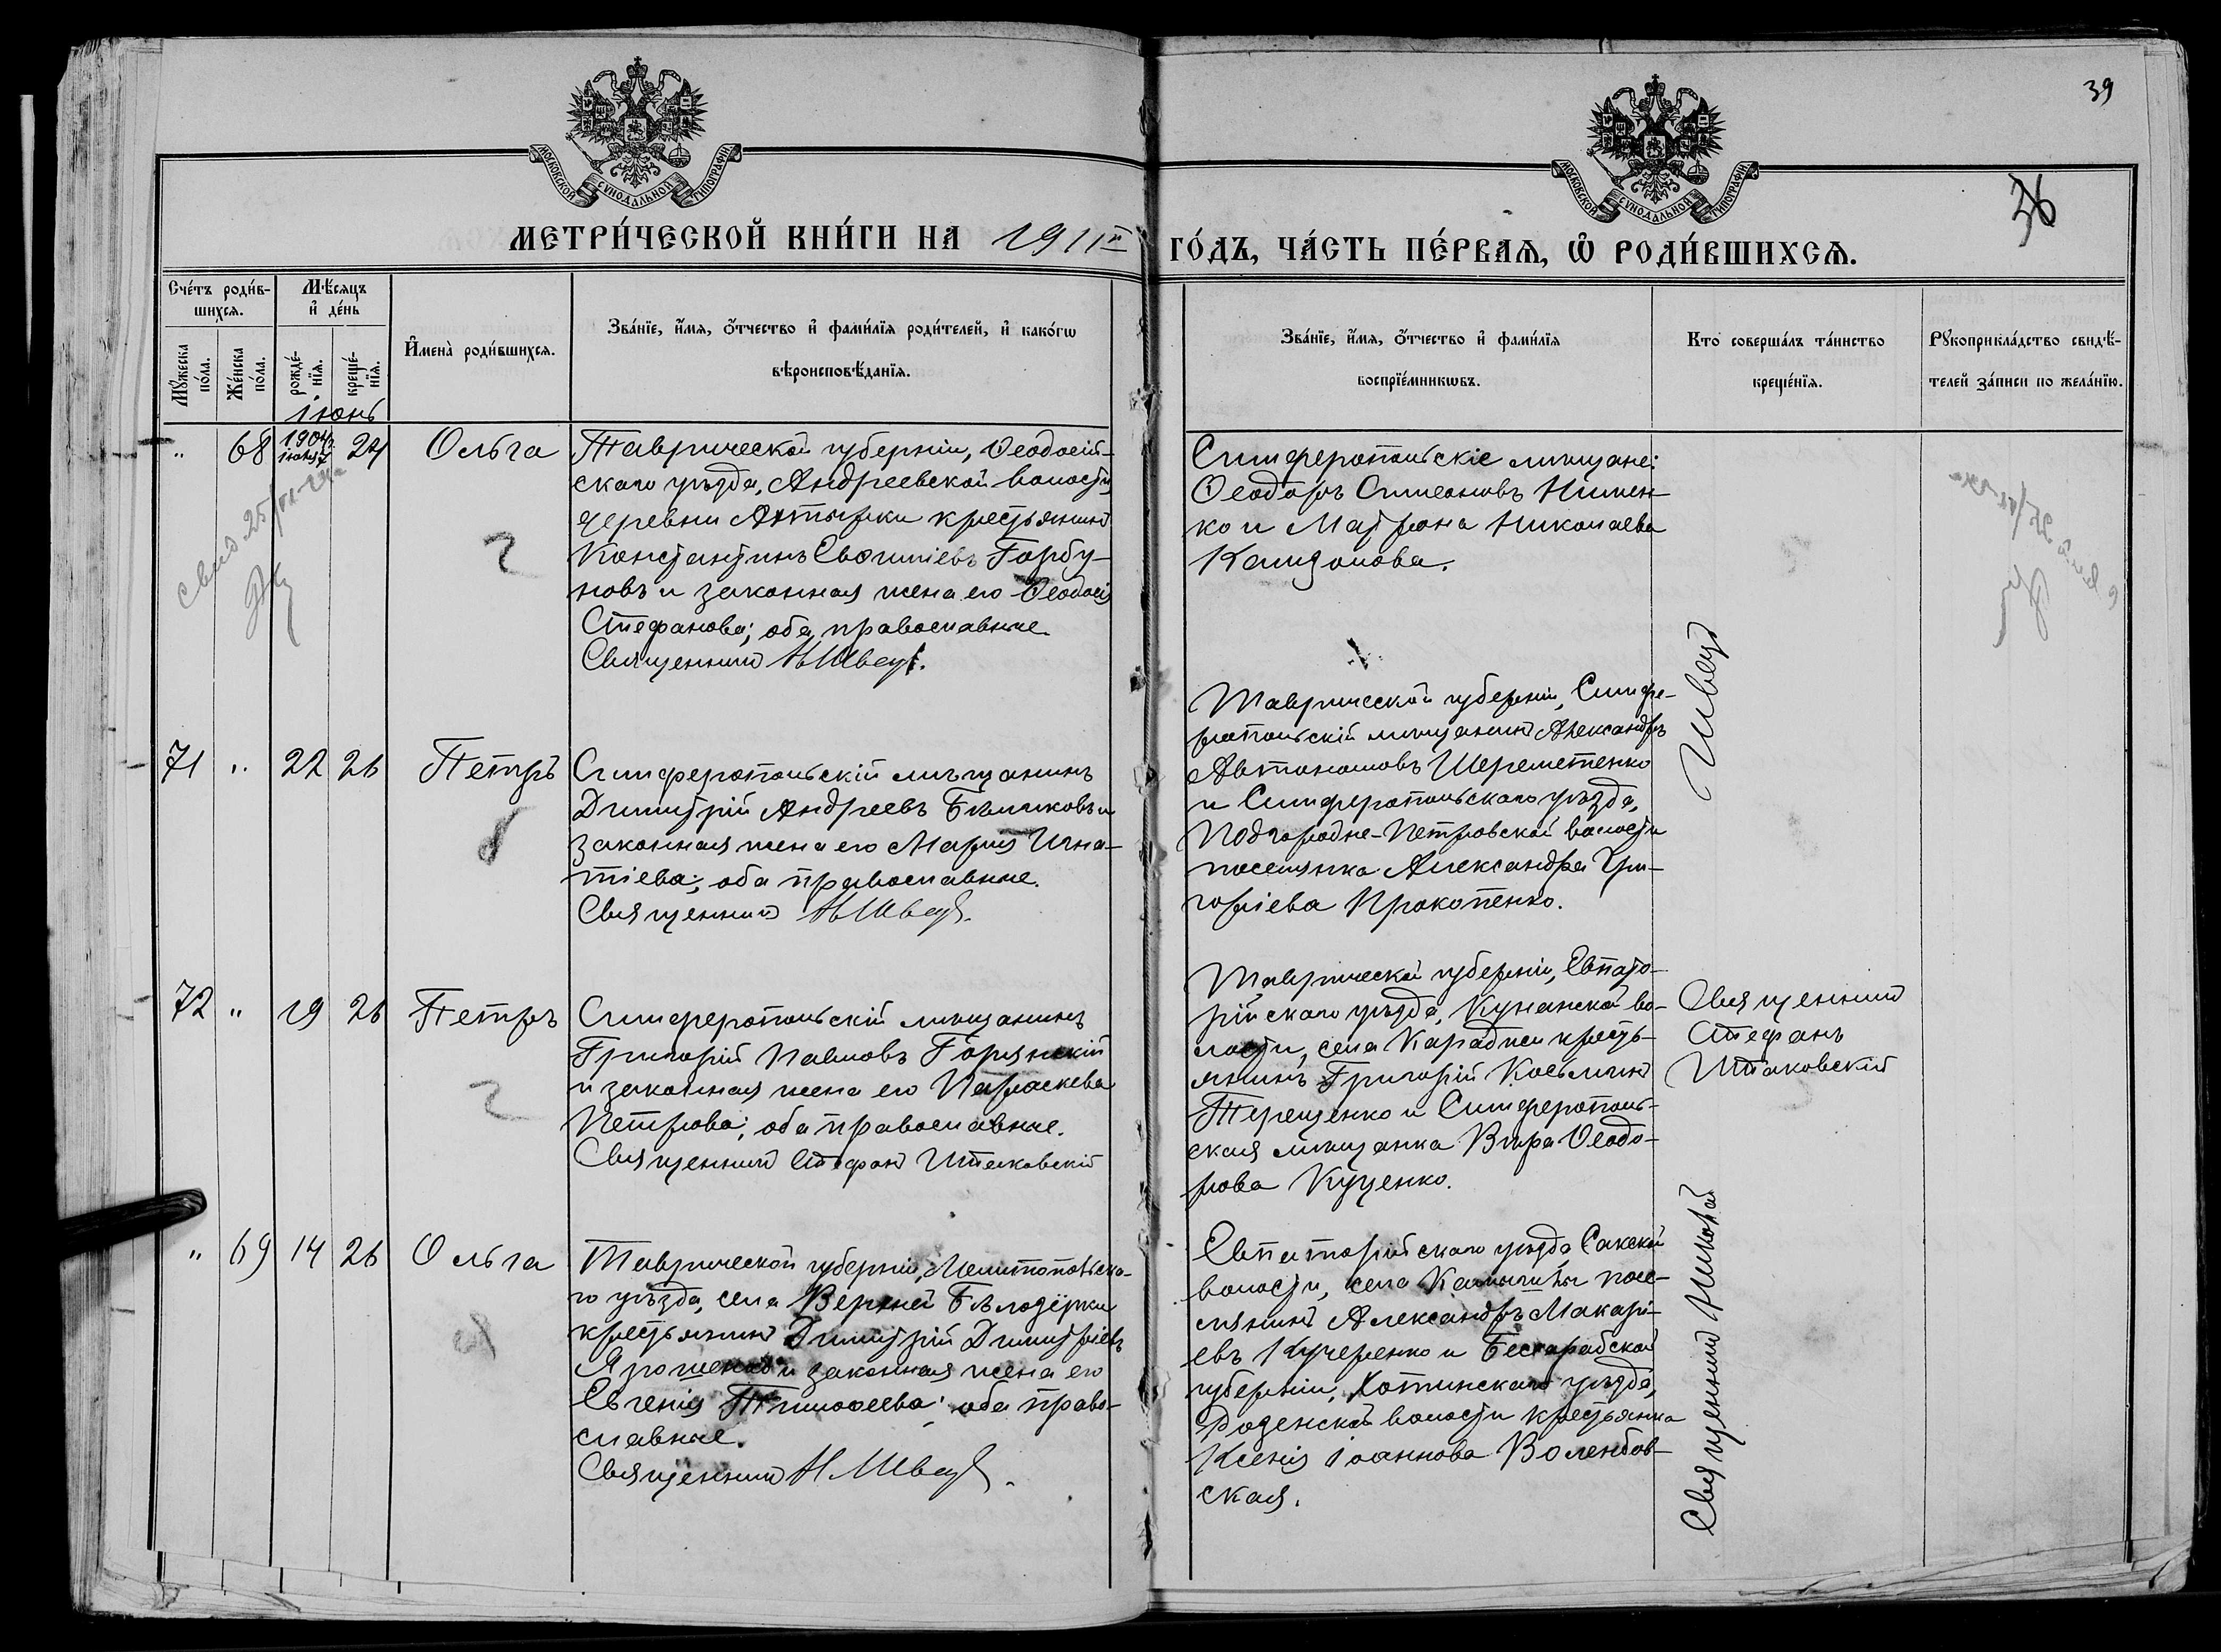 39
36
МОСКОВСКОЙ СѴНОДАЛЬНОЙ ТИПОГРАФІИ
МОСКОВСКОЙ СѴНОДАЛЬНОЙ ТИПОГРАФІИ
МЕТРИ́ЧЕСКОЙ КНИ́ГИ НА 1911й ГО́ДЪ, ЧА́СТЬ ПЕ́РВАѦ, Ѡ РОДИ́ВШИХСѦ.
Сче́тъ роди́в-
шихсѧ.
Мꙋ́жеска
по́ла.
Же́нска
по́ла.
Мѣ́сѧцъ
и҆ де́нь
рожде́-
нїѧ.
креще́-
нїѧ.
Іюнь
И҆мена̀ роди́вшихсѧ.
Зва́нїе, и҆́мѧ, ѻ҆́тчество и҆ фами́лїѧ роди́телей, и҆ како́гѡ
вѣроисповѣ́данїѧ.
Зва́нїе, и҆́мѧ, ѻ҆́тчество и҆ фами́лїѧ
воспрїе́мникѡвъ.
Кто̀ соверша́лъ та́инство
креще́нїѧ.
Рꙋкоприкла́дство свидѣ́-
телей за́писи по жела́нїю.
" 68 1904 г. іюня 7 24 Ольга
Таврической губерніи, Ѳеодосій-
скаго уѣзда, Андреевской волости,
деревни Ахтырки крестьянинъ
Константинъ Евѳиміевъ Горбу-
новъ и законная жена его Ѳеодосія
Стефанова; оба православные.
Священникъ Н Швецъ.
Симферопольскіе мѣщане:
Ѳеодоръ Симеоновъ
ко и Матрона Николаева
71 " 22 26 Петръ
Симферопольскій мѣщанинъ
Димитрій Андреевъ и
законная жена его Марія Игна-
тіева; оба православные.
Священникъ Н Швецъ.
Таврической губерніи, Симфе-
ропольскій мѣщанинъ Александръ
Автономовъ Шереметенко
и Симферопольскаго уѣзда,
Подгородне-Петровской волости
поселянка Александра Гри-
горіева Прокопенко.
72 " 19 26 Петръ
Симферопольскій мѣщанинъ
Григорій Павловъ Горянскій
и законная жена его Параскева
Петрова; оба православные.
Священникъ Стефанъ Штаковскій
Таврической губерніи, Евпато-
рійскаго уѣзда, Кунанской во-
лости, села Караджи кресть-
янинъ Григорій Косьминъ
Терещенко и Симферополь-
ская мѣщанка Вѣра Ѳеодо-
рова Куценко.
Священникъ
Стефанъ
Штаковскій
" 69 14 26 Ольга
Таврической губерніи, Мелитопольска-
го уѣзда, села Верхней Бѣлозёрки
крестьянинъ Димитрій Димитріевъ
Ярошенко и законная жена его
Евгенія Тимоѳеева; оба право-
славные.
Священникъ Н. Швецъ.
Евпаторійскаго уѣзда, Сакской
волости, села посе-
лянинъ Александръ Макарі-
евъ Кучеренко и Бессарабской
губерніи, Хотинскаго уѣзда,
волости крестьянка
Ксенія Іоаннова
ская.
Священникъ Николай
Швецъ